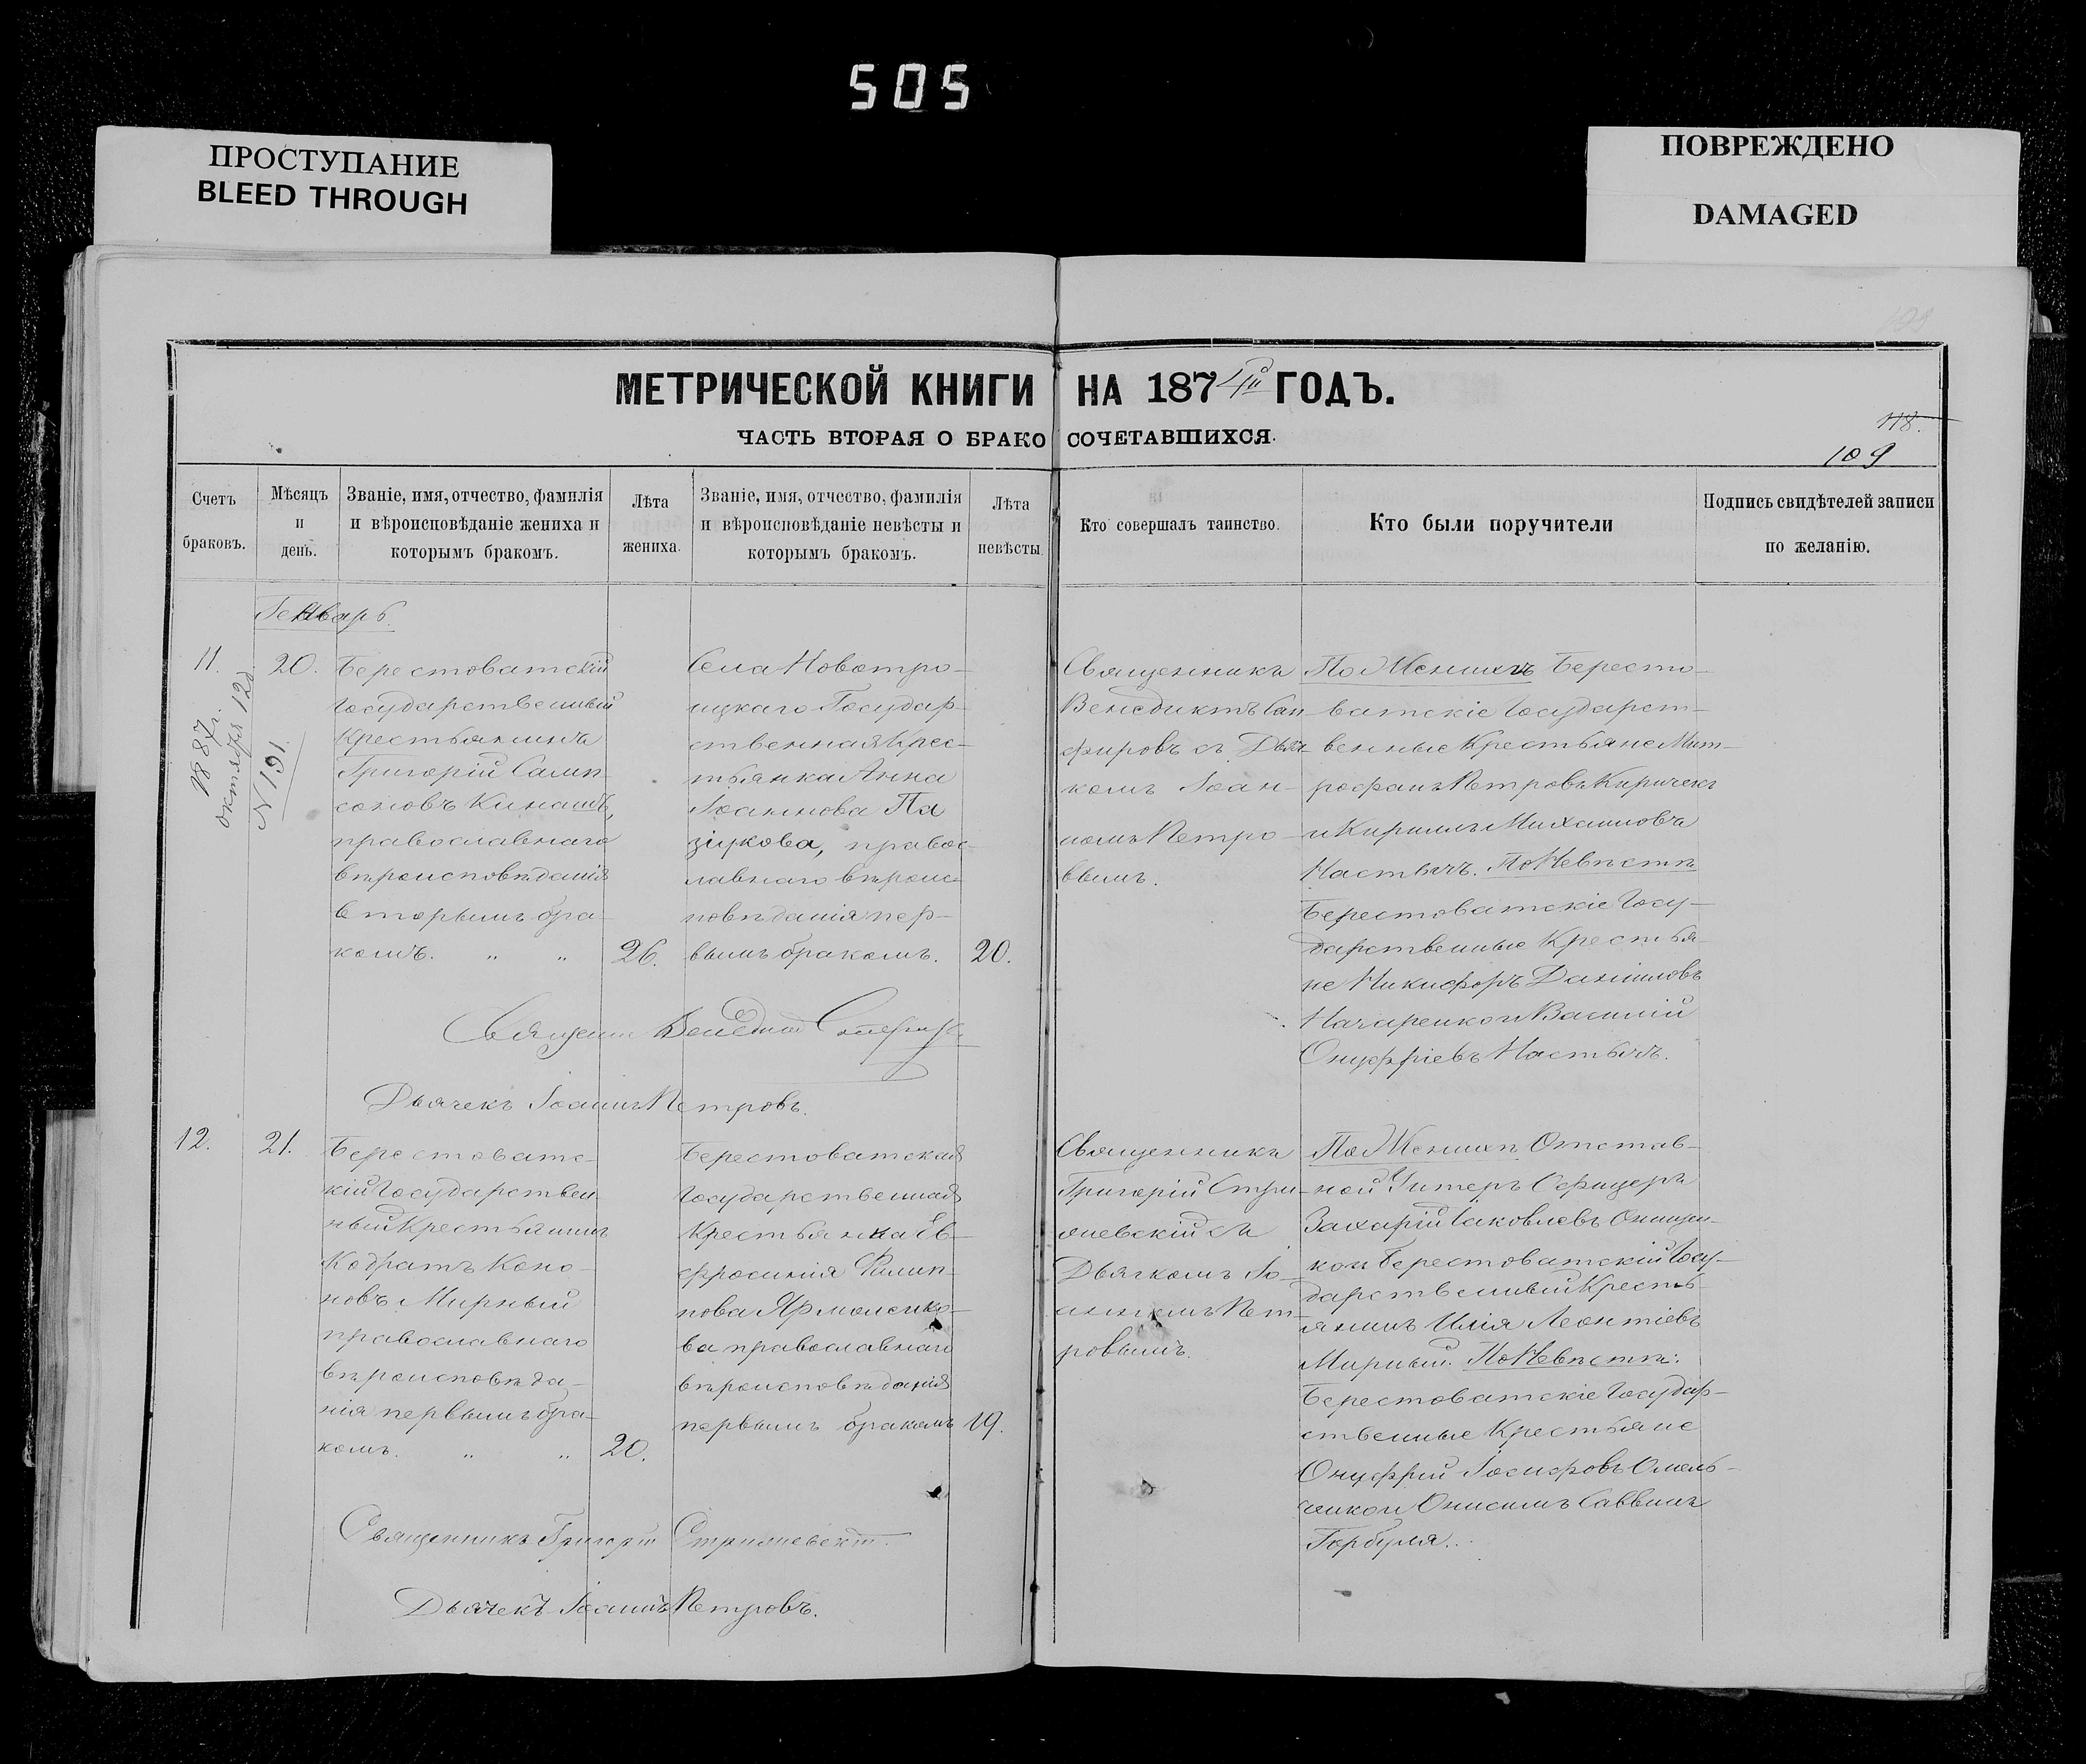 505
ПРОСТУПАНИЕ
BLEED THROUGH
ПОВРЕЖДЕНО
DAMAGED
МЕТРИЧЕСКОЙ КНИГИ НА 1874й ГОДЪ.
ЧАСТЬ ВТОРАЯ О БРАКОСОЧЕТАВШИХСЯ.
118.
109
Счетъ браковъ.
Мѣсяцъ и день.
Званіе, имя, отчество, фамилія и вѣроисповѣданіе жениха и которымъ бракомъ.
Лѣта жениха.
Званіе, имя, отчество, фамилія и вѣроисповѣданіе невѣсты и которымъ бракомъ.
Лѣта невѣсты.
Кто совершалъ таинство.
Кто были поручители
Подпись свидѣтелей записи по желанію.
Генварь.
11.
1887 г.
октября 12 д.
N 191
20.
Берестоватскій
Государственный
Крестьянинъ
Григорій Самп-
соновъ Кинашъ,
православнаго
вѣроисповѣданія
вторымъ бра-
комъ. " "
26.
Села Новотро-
ицкаго Государ-
ственная Крес-
тьянка Анна
Іоаннова Па
зіукова, правос-
лавнаго вѣроис-
повѣданія пер-
вымъ бракомъ.
20.
Священникъ
Венедиктъ Сап-
фировъ съ Дьяч-
комъ Іоан-
номъ Петро-
вымъ.
По Женихѣ Бересто-
ватскіе Государст-
венные Крестьяне Мит-
рофанъ Петровъ Киричекъ
и Кириллъ Михайловъ
Настычъ. По Невѣстѣ
Берестоватскіе Госу-
дарственные Крестья-
не Никифоръ Даніиловъ
Назаренко и Василій
Онуфріевъ Настычъ.
Священникъ Венедиктъ Сапфировъ
Дьячекъ Іоаннъ Петровъ.
12.
21.
Берестоватс-
кій Государствен-
ный Крестьянинъ
Кодратъ Коно-
новъ Мирный
православнаго
вѣроисповѣда-
нія первымъ бра-
комъ. " "
20.
Берестоватская
Государственная
Крестьянка Ев-
фросинія Филип-
пова Ярмоленко-
ва православнаго
вѣроисповѣданія
первымъ бракомъ
19.
Священникъ
Григорій Стри-
Дьячкомъ Іо-
анномъ Пет-
ровымъ.
По Женихѣ Отстав-
ной Унтеръ Офицеръ
Захарій Іаковлевъ Онищен-
ко и Берестоватскій Госу-
дарственный Кресть-
янинъ Илія Леонтіевъ
Мирный. По Невѣстѣ:
Берестоватскіе Государ-
ственные Крестьяне
Онуфрій Іосифовъ Омель-
ченко и Онисимъ Саввинъ
Горбуля.
Священникъ Григорій
Дьячекъ Іоаннъ Петровъ.